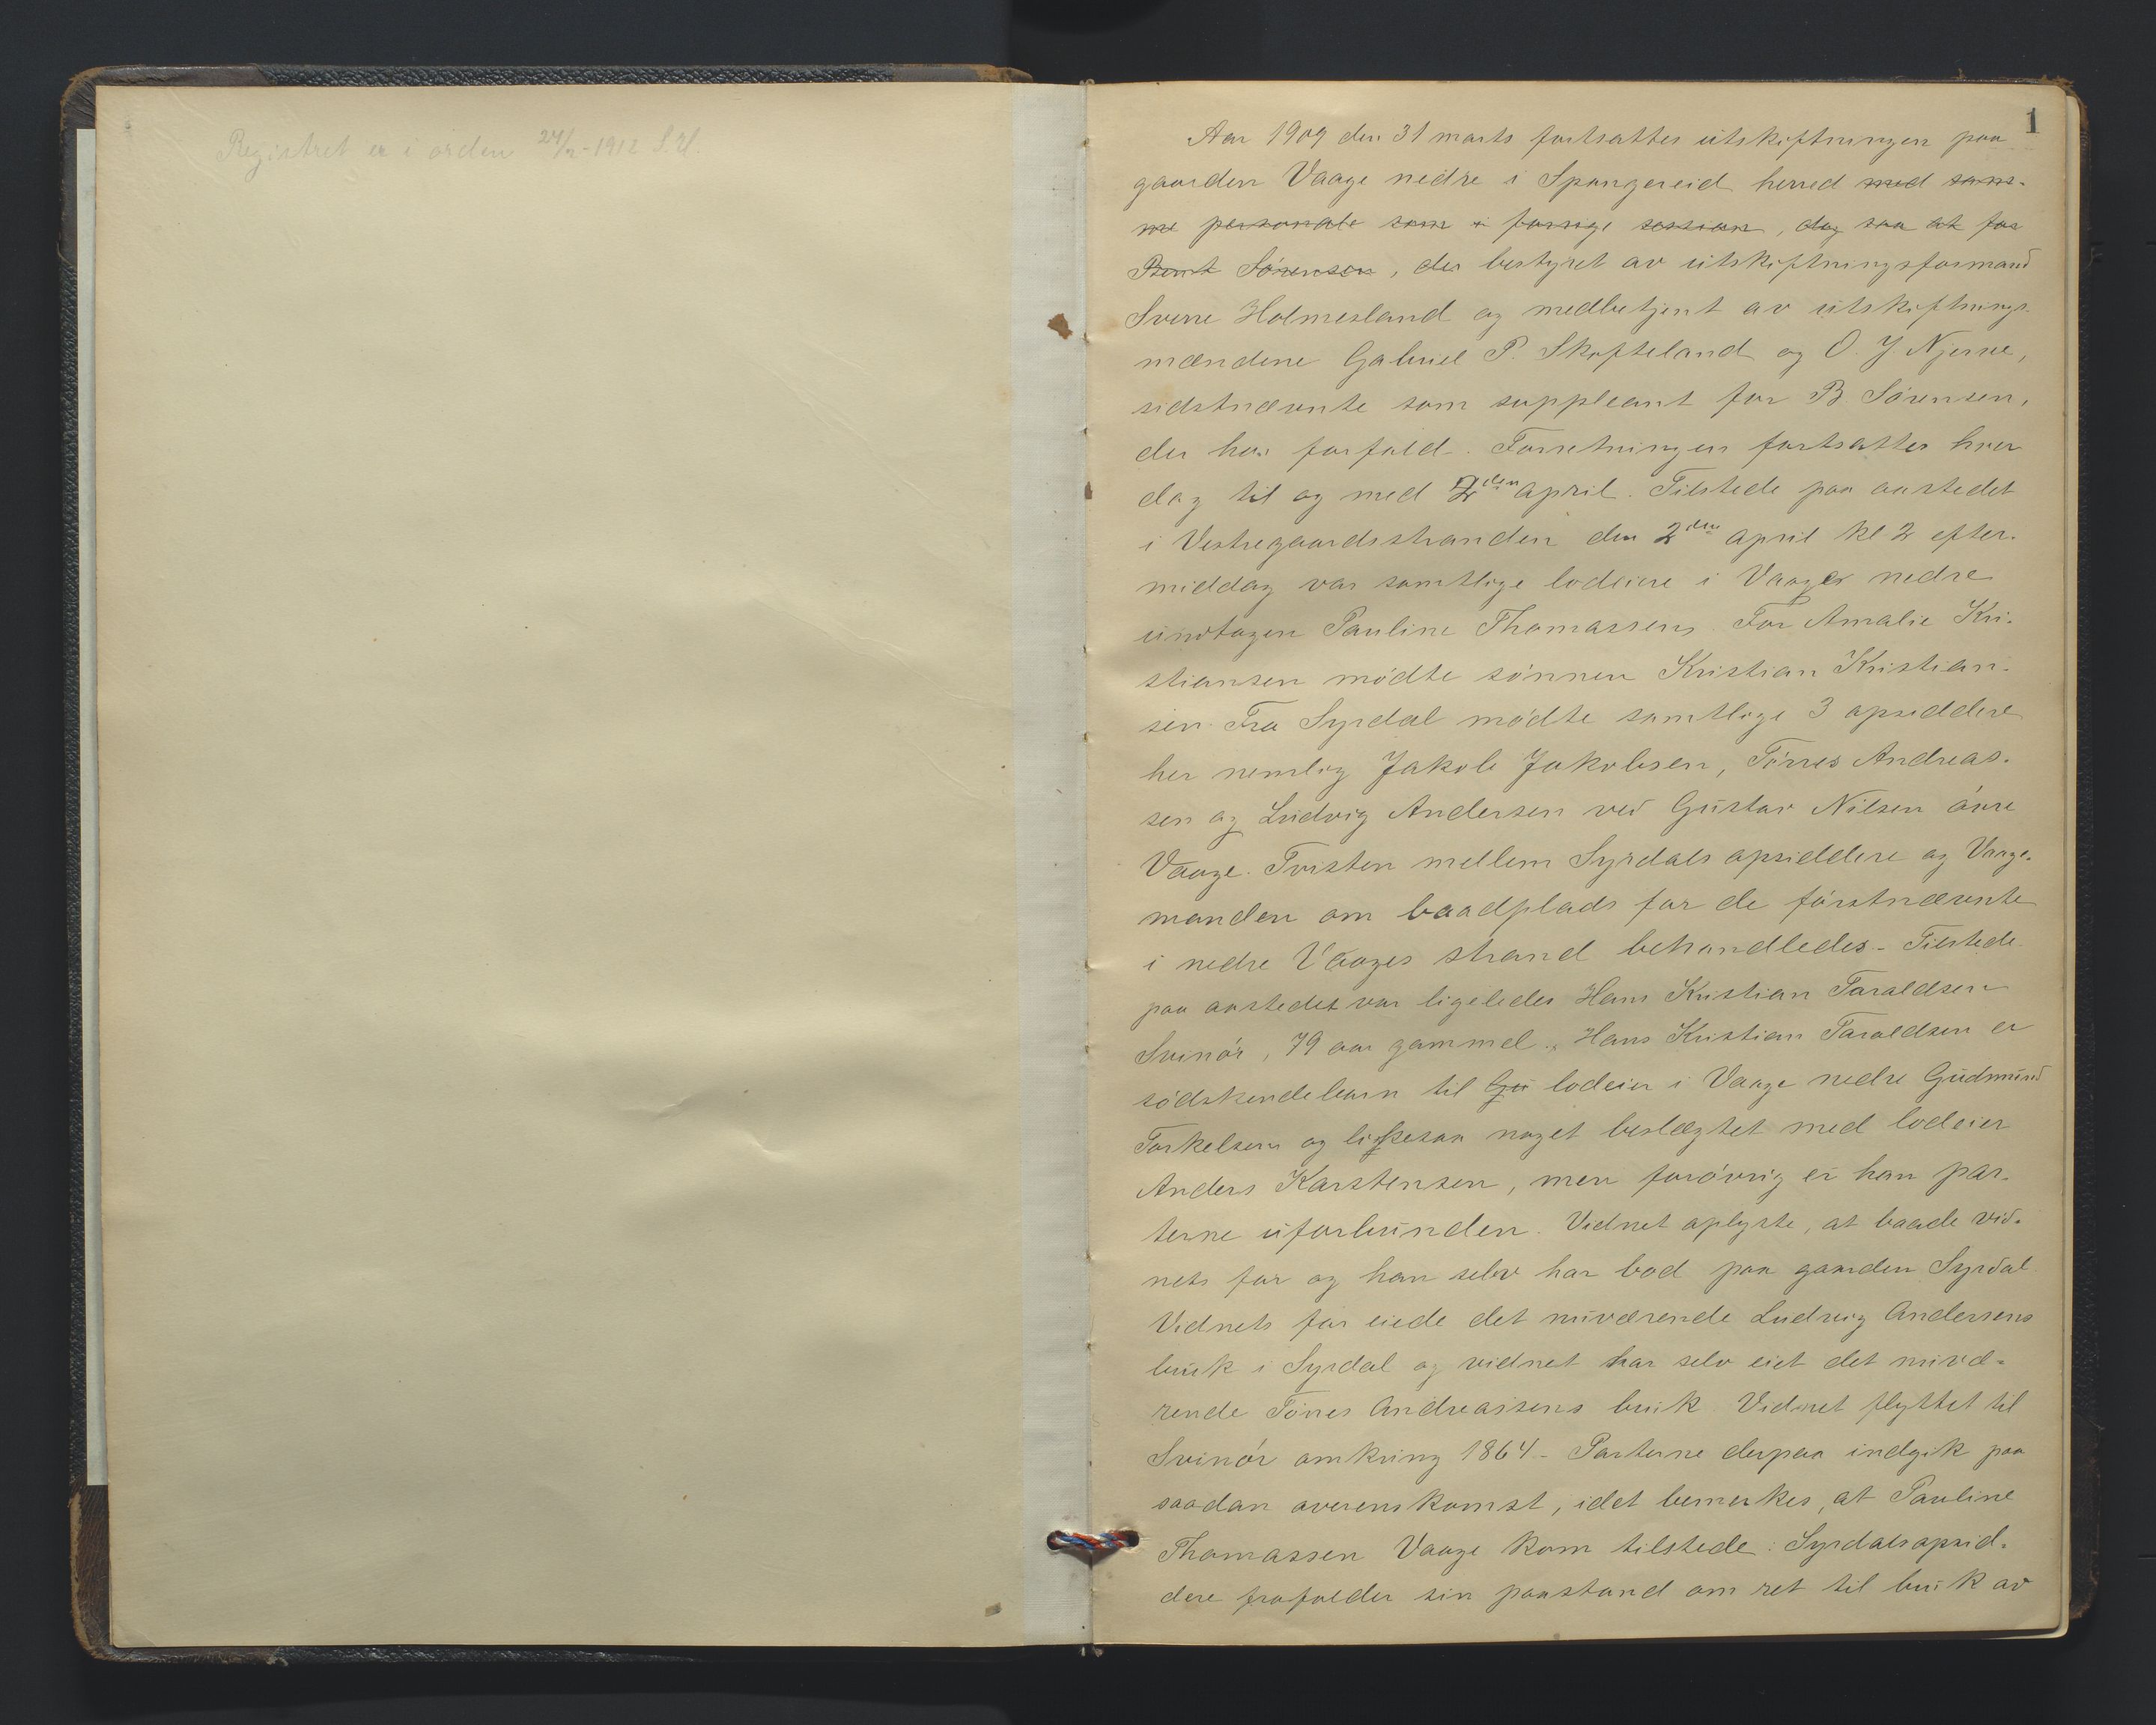 Registret er i orden 24/2-1912 S.H.
1
Aar 1909 den 31 marts fortsattes utskiftningen paa
gaarden Vaage nedre i Spangereid herred med sam-
me personale som i forrige session, dog saa at for
Bernt Sørensen, der bestyret av utskiftningsformand
Sverre Holmesland og medbetjent av utskiftnings-
mændene Gabriel P. Skofteland og O. J. Njerve,
sidstnævnte som suppleant for B Sørensen,
der har forfald. Forretningen fortsattes hver
dag til og med 2den april. Tilstede paa aastedet
i Vestregaardsstranden den 2den april kl 2 efter-
middag var samtlige lodeiere i Vaage nedre
undtagen Pauline Thomassen. For Amalie Kri-
stiansen mødte sønnen Kristian Kristian-
sen. Fra Syrdal mødte samtlige 3 opsiddere
her nemlig Jakob Jakobsen, Tørres Andreas-
sen og Ludvig Andersen ved Gustav Nilsen øvre
Vaage. Tvisten mellem Syrdals opsiddere og Vaage-
manden om baadplads for de førstnævnte
i nedre Vaages strand behandledes. - Tilstede
paa aastedet var ligeledes Hans Kristian Taraldsen
Svinør, 79 aar gammel. Hans Kristian Taraldsen er
sødskendebarn til Gu lodeier i Vaage nedre Gudmund
Torkelsen og likesaa noget beslægtet med lodeier
Anders Karstensen, men forøvrig er han par-
terne uforbunden. Vidnet oplyste, at baade vid-
nets far og han selv har bod paa gaarden Syrdal.
Vidnets far eiede det nuværende Ludvig Andersens
bruk i Syrdal og vidnet har selv eiet det nuvæ-
rende Tørres Andreassens bruk. Vidnet flyttet til
Svinør omkring 1864 - Parterne derpaa indgik paa
saadan overenskomst, idet bemerkes, at Pauline
Thomassen Vaage kom tilstede: Syrdalsopsid-
dere frafalder sin paastand om ret til bruk av